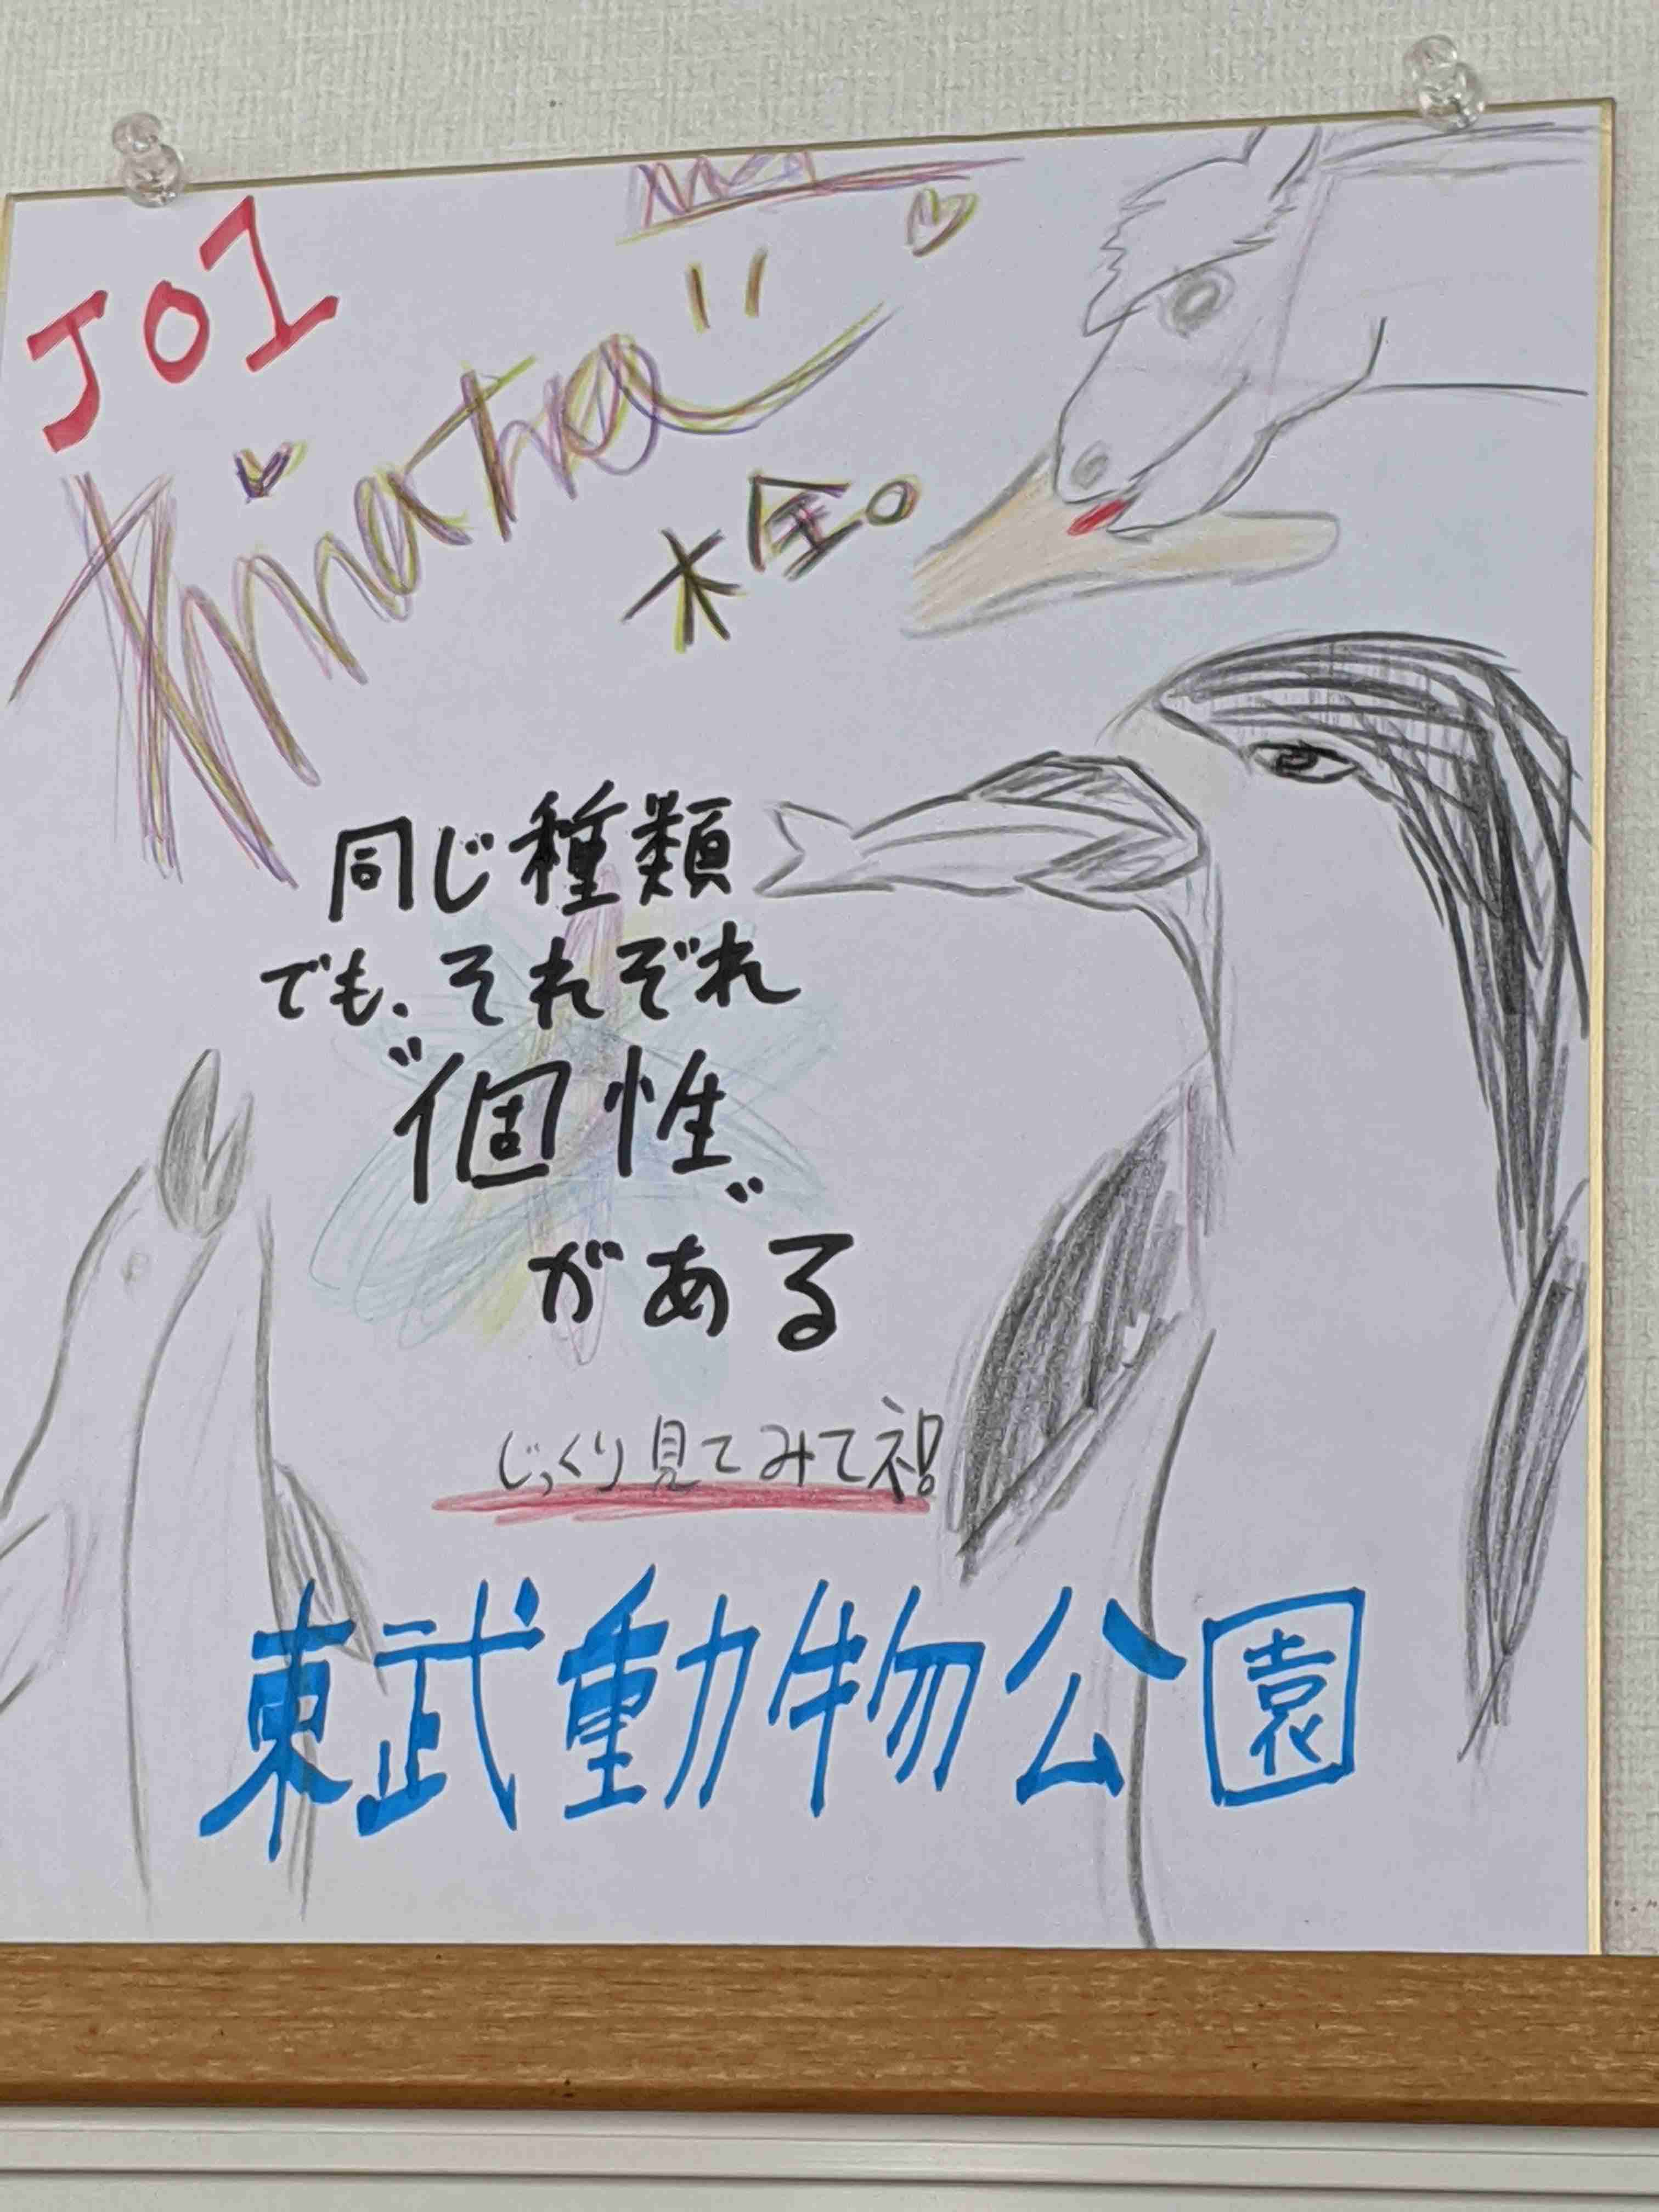 JO1
木全。
同じ種類
でも、それぞれ
"個性"
がある
じっくり見てみてネ!!
東武動物公園